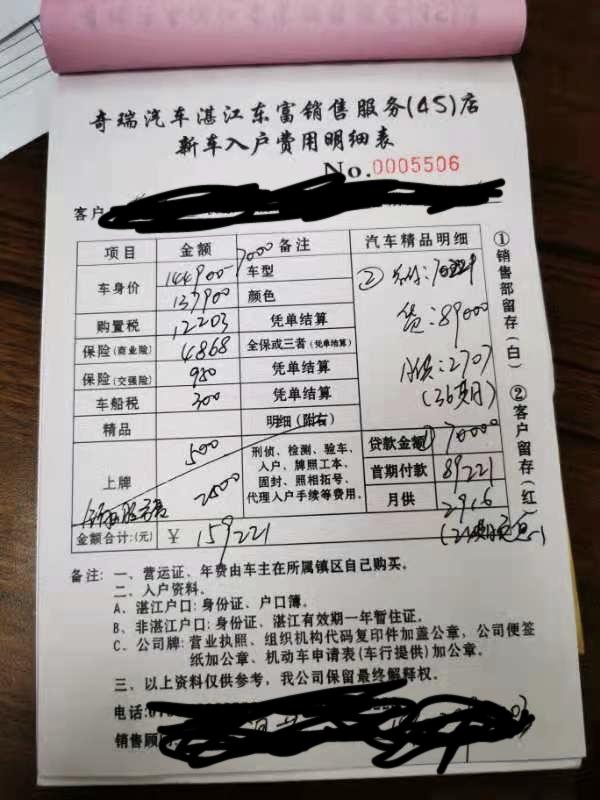 奇瑞汽车湛江东富销售服务(4S)店
新车入户费用明细表
No.0005506
客户
项目 金额 备注 汽车精品明细
车身价 144900 7000 车型
137900 颜色
购置税 12203 凭单结算
保险(商业险) 4868 全保或三者(凭单结算)
保险(交强险) 980 凭单结算
车船税 300 凭单结算
精品 明细(附右)
上牌 500
2500
刑侦、检测、验车、
入户、牌照工本、
固封、照相拓号、
代理入户手续等费用。
② 70221
贷:89000
月供:2707
(36期)
贷款金额 ① 70000
首期付款 89221
月供 2916
金额合计:(元) ¥ 159221
①销售部留存(白) ②客户留存(红)
备注:一、营运证、年费由车主在所属镇区自己购买。
二、入户资料。
A、湛江户口:身份证、户口簿。
B、非湛江户口:身份证、湛江有效期一年暂住证。
C、公司牌:营业执照、组织机构代码复印件加盖公章,公司便签
纸加公章、机动车申请表(车行提供)加公章。
三、以上资料仅供参考,我公司保留最终解释权。
电话:
销售顾